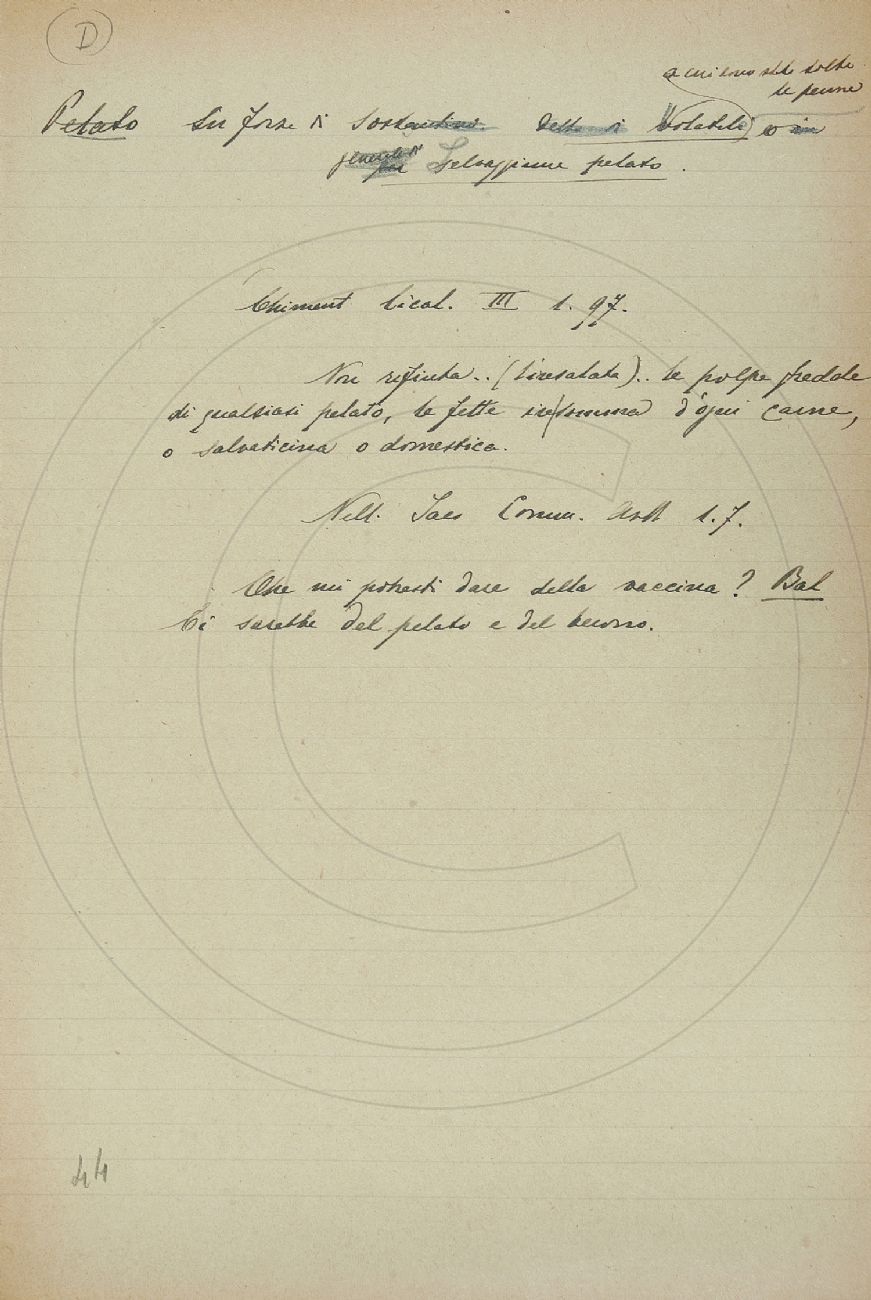 D
a cui sono state tolte
le penne
Pelato In forza di Sostantivo. Detto di Volatili o in
generale di Selvaggiume pelato.
Chiment Cical. III 1. 97.
Non rifiuta.. (l'insalata).. le polpe fredde
di qualsiasi pelato, le fette insomma d'ogni carne,
o salvaticina o domestica.
Nell. Iac. Comm. 1. 7.
Che mi potresti dare della vaccina? Bal
Ci sarebbe del pelato e del buono.
44